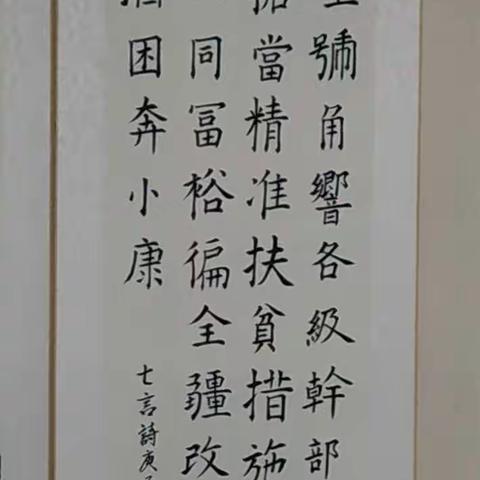 號角響各級幹部
當精准扶貧措施
同冨裕徧全疆改
困奔小康
七言詩庚